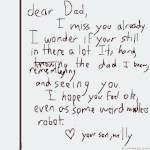 dear Dad,
I miss you already.
I wonder if your still
in there a lot. Its hard,
knowing the dad I been,
remembering
and seeing you.
I hope you feel ok,
even as some weird
robot.
♡ your son, willy